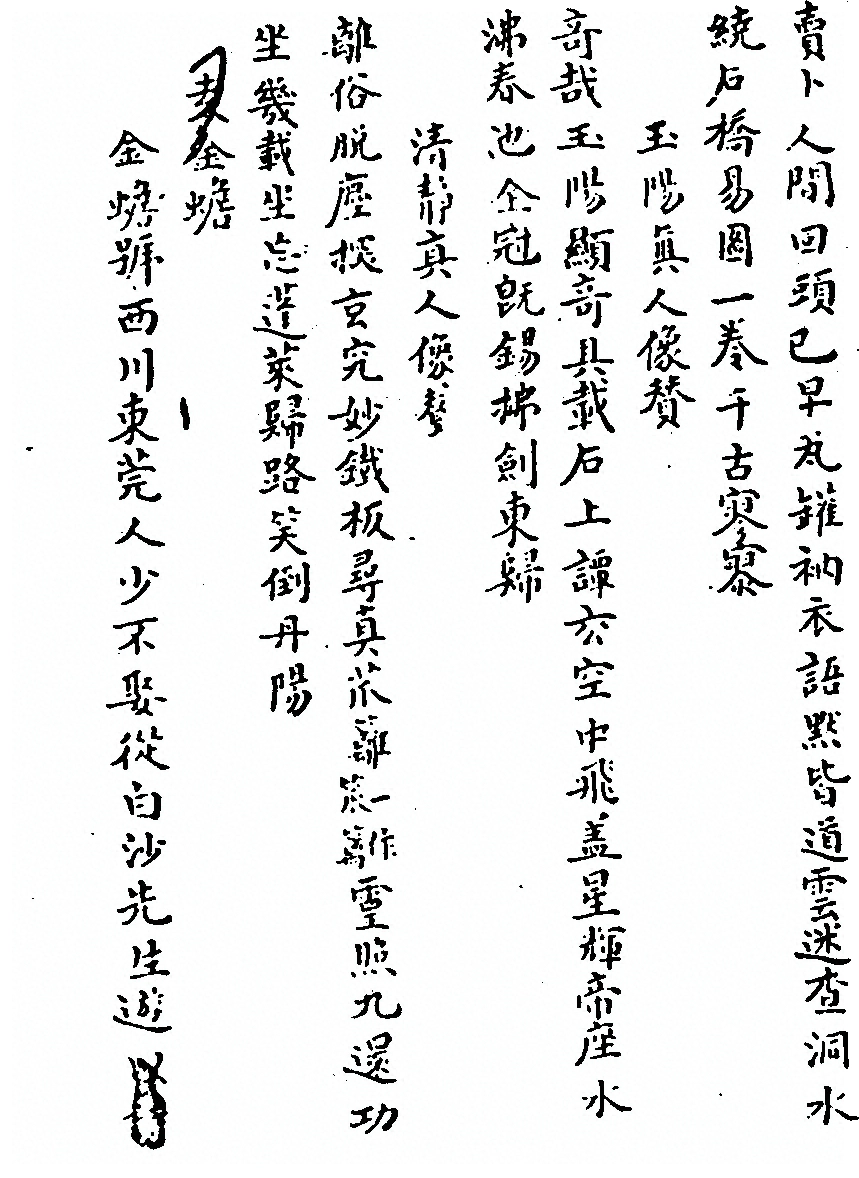 賣卜人間回頭已早瓦罐衲衣語默皆道雲迷查洞水
繞石橋易圖一卷千古寥寥
玉陽真人像贊
奇哉玉陽顯奇具載石上譚玄空中飛盖星輝帝座水
沸春池金冠既錫拂劍東歸
清靜真人像贊
離俗脱塵談玄究妙鐵板尋真笊籬一作靈照九還功
坐幾載坐忘蓬萊歸路笑倒丹陽
李金蟾
金蟾號西川東莞人少不娶從白沙先生遊